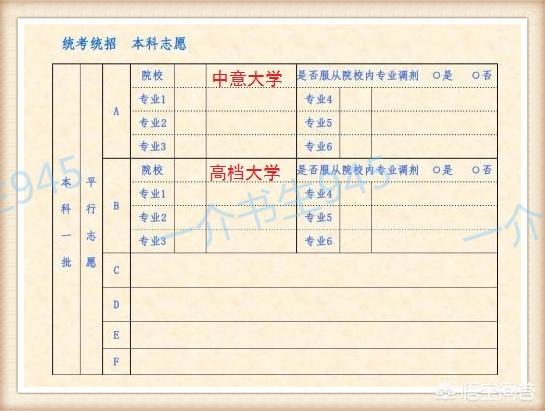 统考统招 本科志愿
本科一批
平行志愿
A
院校 中意大学 是否服从院校内专业调剂 是 否
专业1 专业4
专业2 专业5
专业3 专业6
B
院校 高档大学 是否服从院校内专业调剂 是 否
专业1 专业4
专业2 专业5
专业3 专业6
C
D
E
F
生945
一介书生945
一介
悟空问答